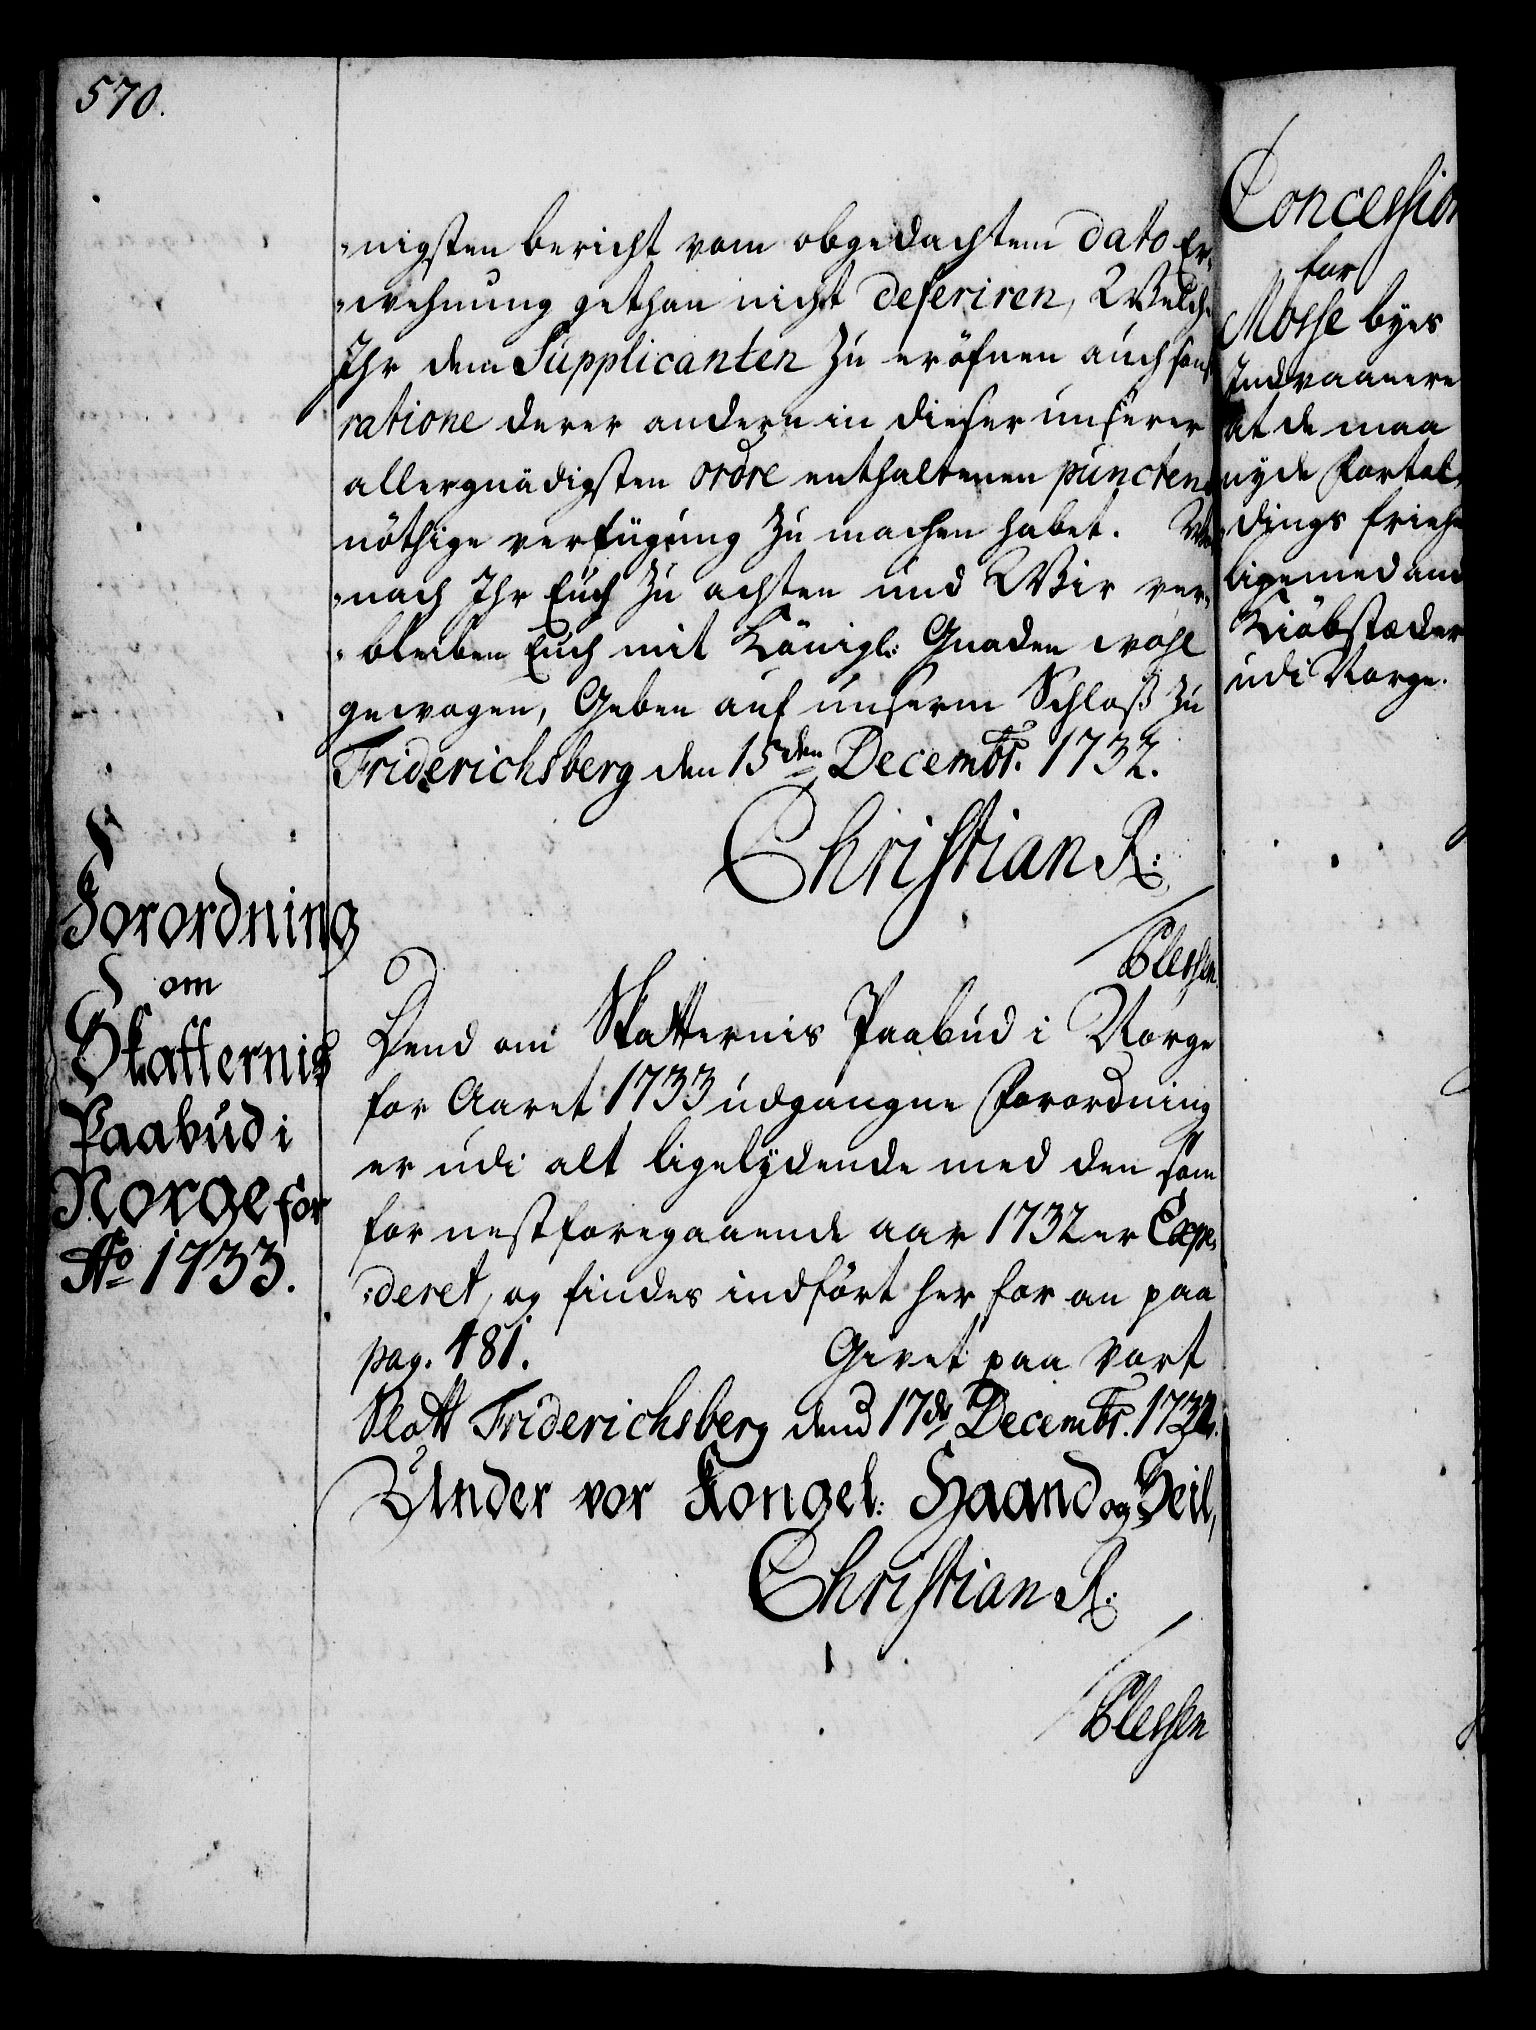 570.
-nigsten bericht vom obgedachtem dato Er-
-wehnung gethan nicht deferiren, Welch
Ihr dem Supplicanten zu eröfnen auch sons
ratione derer andern in dieser unserer
allergnädigsten ordre enthaltenen puncten
nöthige verfügung zu machen habet. Wor
-nach Ihr Euch zu achten und Wir ver-
-bleiben Euch mit Königl: Gnaden wohl
gewogen, Geben auf unserm Schloß zu
Friderichsberg den 15den Decembr. 1732.
Christian R:
Forordning
om
Skatternis
Paabud i
Norge for
Ao 1733.
Dend om Skatternis Paabud i Norge
for Aaret 1733 udgangne Forordning
er udi alt ligelydende med den som
for nestforegaaende aar 1732 er Expe-
-deret, og findes indført her for an paa
pag. 481. Givet paa Vort
Slott Friderichsberg dend 17de Decembr. 1732.
Under vor Kongel: Haand og Seil,
Christian R:
Concession
for
Mosse byes
Indvaanere
at de maa
nyde Fortol-
dings frihe
lige med an
Kiöbstæder
udi Norge.